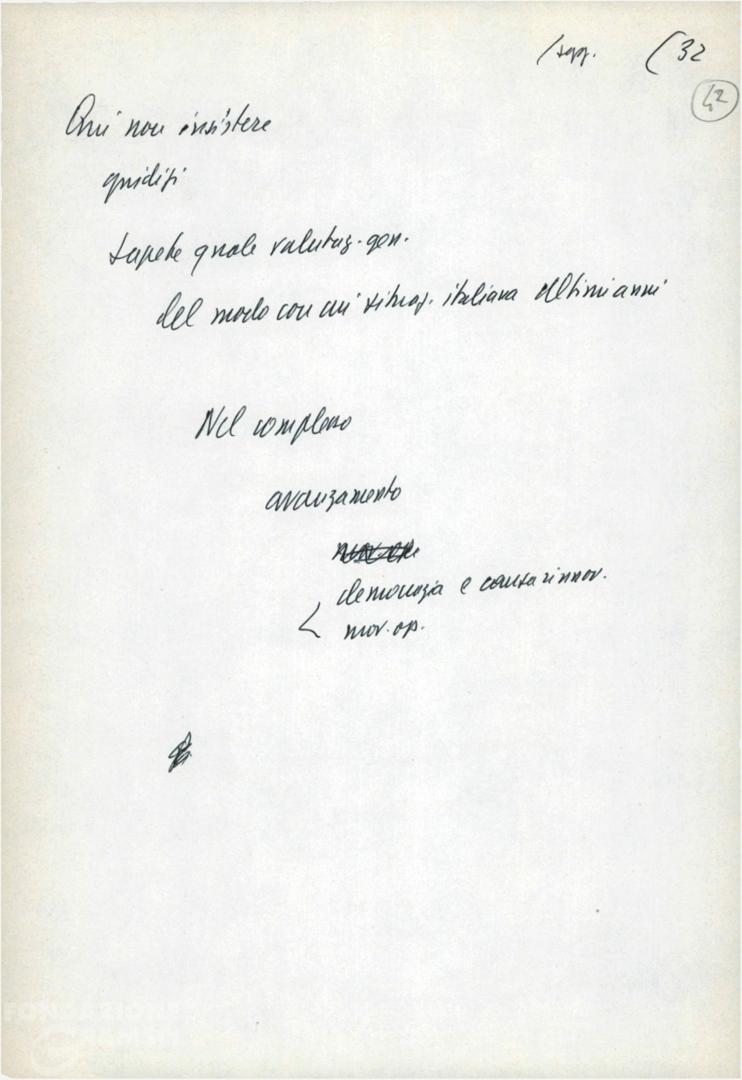 /sgg. (32
42
Qui non insistere
giudizi
sapete quale valutaz. gen.
del modo con cui situaz. italiana ultimi anni
Nel complesso
avanzamento
democrazia e causa rinnov.
mov. op.
FONDAZIONE
GRAMSCI